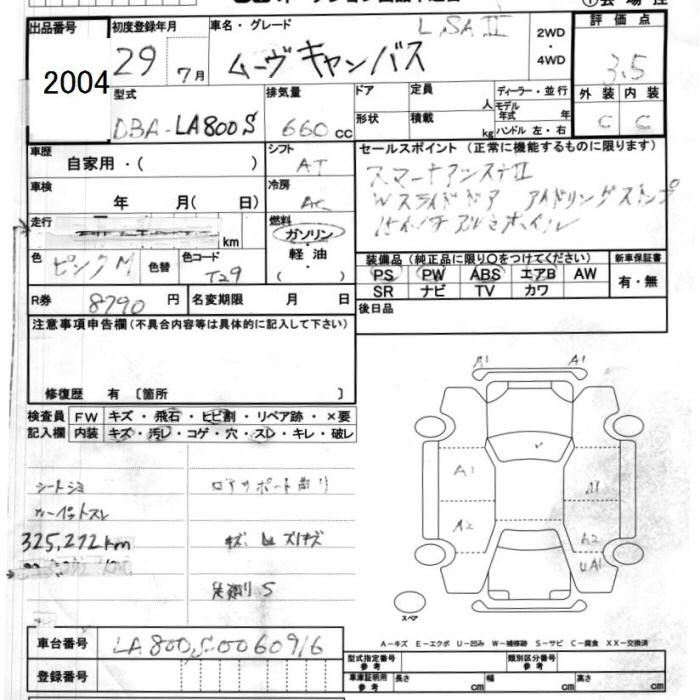 出品番号 初度登録年月 車名・グレード LSAⅡ 2WD・4WD 評価点
2004 29 7月 ムーヴキャンバス 3.5
型式 排気量 ドア 定員 人 ディーラー・並行 外装 内装
DBA-LA800S 660cc 形状 積載 kg モデル年式 年 ハンドル 左・右 C C
車歴 自家用・( ) シフト AT セールスポイント (正常に機能するものに限ります)
車検 年 月( 日) 冷房 AC スマートアシストⅡ
Wスライドドア アイドリングストップ
走行 km 燃料 ガソリン・軽油( ) アルミホイル
色 ピンクM 色替 色コード T29
装備品(純正品に限り○をつけてください) 新車保証書
PS PW ABS エアB AW 有・無
SR ナビ TV カワ
R券 8790円 名変期限 月 日 後日品
注意事項申告欄(不具合内容等は具体的に記入して下さい)
修復歴 有 〔箇所 〕
検査員 FW キズ・飛石・ヒビ割・リペア跡・×要
記入欄 内装 キズ・汚レ・コゲ・穴・スレ・キレ・破レ
A1 A1
シートシミ
A1 A1
カーペットスレ
325,272km
A2 A2
UA1
スペア
A-キズ E-エクボ U-凹み W-補修跡 S-サビ C-腐食 XX-交換済
車台番号 LA800S-0060916
型式指定番号 参考 類別区分番号 参考
登録番号 車庫証明用 参考 長さ cm 幅 cm 高さ cm